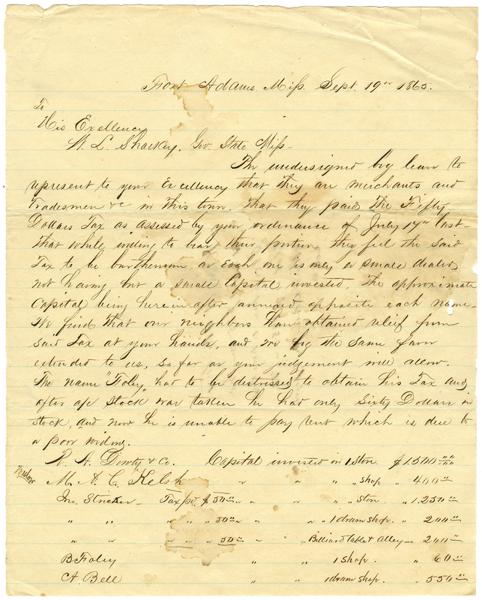 Fort Adams Miss. Sept. 19th 1865.
To
His Exellency
W. L. Sharkey, Gov State Miss.
The undersigned beg leave to
represent to your Excellency that they are merchants and
Tradesmen &c in this town, That they paid the Fifty
Dollars Tax as assessed by your ordinance of July last
That while willing to bear their portion they feel the said
Tax to be burthensom as each one is only a small dealer,
not having but a small Capital invested. The approximate
Capital being hereinafter annexed opposite each name.
We find that our neighbors have obtained relief from
said Tax at your hands, and we beg the same favor
extended to us, so far as your judgement will allow.
The name "Foley" had to be distressed to obtain his Tax and
after his stock was taken he had only Sixty Dollars in
stock, and now he is unable to pay rent which is due to
a poor widow.
Dowty & Co. Capital invested in 1 Store $1500 00/00
Widow M. A. C. Kelsh " " 1 shop " 400 00
Jno. Stricker - Tax pd. $50 00 " " 1 store " 1.250 00
" " " " " 50 00 " " 1 dram shop " 200 00
" " " " " 50 00 " Billiard Table & Alley " 200 00
B Foley " " 1 shop " 60 00
A. Bell " " 1 dram shop " 550 00